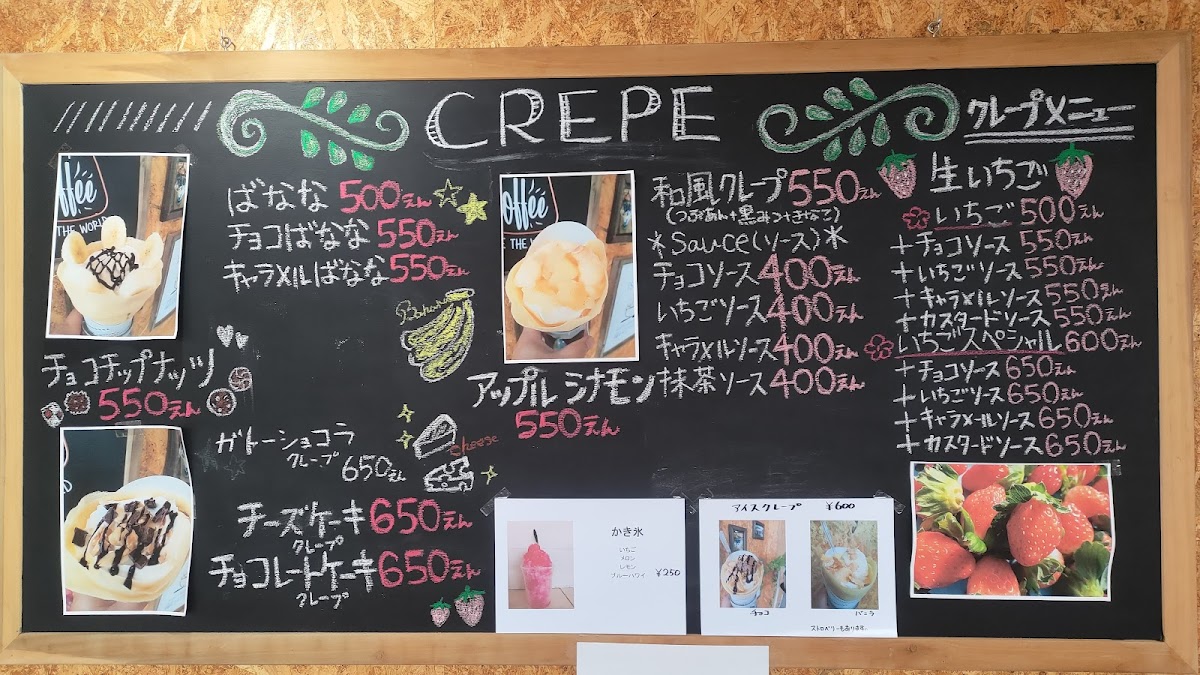 CREPE
クレープメニュー
offee
THE WORL
ばなな 500えん
チョコばなな 550えん
キャラメルばなな 550えん
Banana
チョコチップナッツ
550えん
ガトーショコラ
クレープ 650えん
cheese
チーズケーキ 650えん
クレープ
チョコレートケーキ 650えん
クレープ
offee
THE W
アップルシナモン
550えん
和風クレープ 550えん
(つぶあん+黒みつ+きなこ)
*Sauce(ソース)*
チョコソース 400えん
いちごソース 400えん
キャラメルソース 400えん
抹茶ソース 400えん
生いちご
いちご 500えん
+チョコソース 550えん
+いちごソース 550えん
+キャラメルソース 550えん
+カスタードソース 550えん
いちごスペシャル 600えん
+チョコソース 650えん
+いちごソース 650えん
+キャラメールソース 650えん
+カスタードソース 650えん
かき氷
いちご
メロン
レモン
ブルーハワイ ¥250
アイスクレープ ¥600
チョコ
バニラ
ストロベリーもあります。